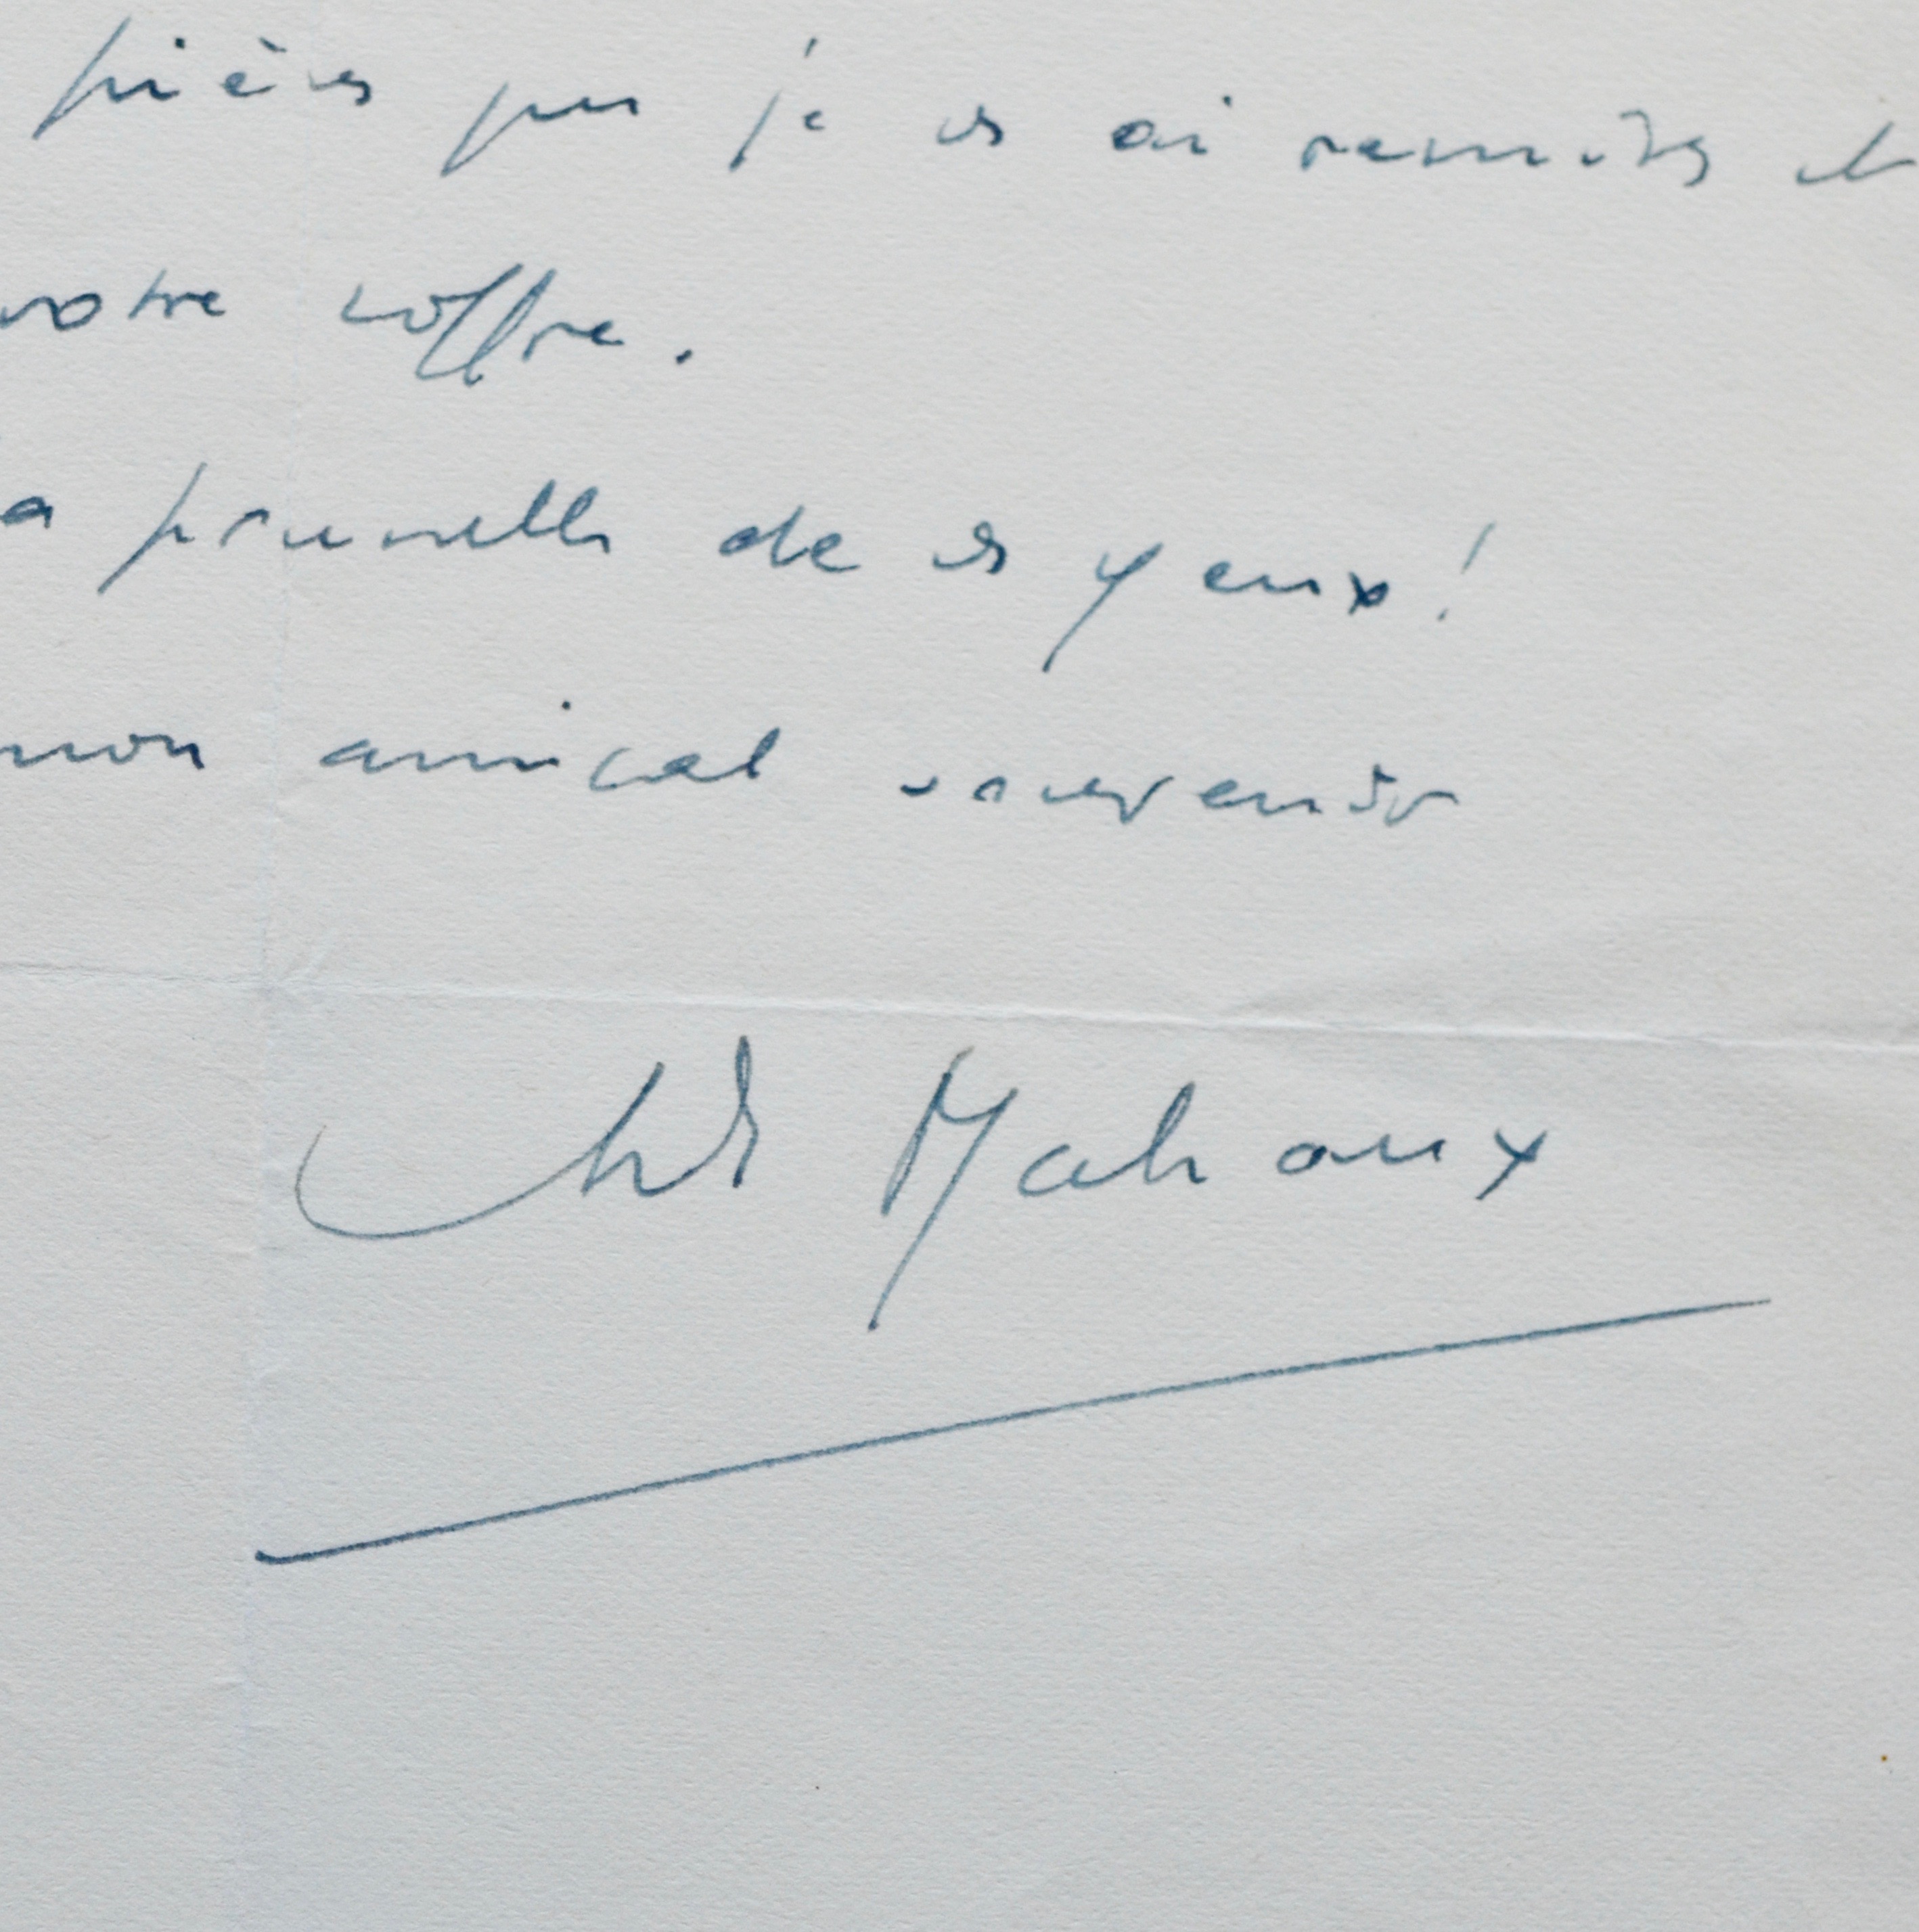 pièces que je vs ai remises et
votre coffre.
la prunelle de vs yeux!
mon amical souvenir
Ch Mahaux